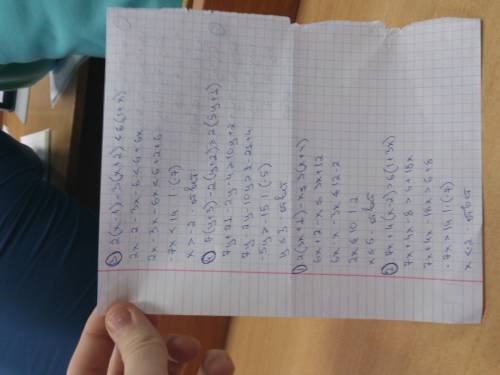 3) 2(x-1)-3(x+2)<6(1+x)
2x-2-3x-6<6+6x
2x-3x-6x<6+2+6
-7x<14 |:(-7)
x>-2 - ответ
4) 7(y+3)-2(y+2)≥2(5y+1)
7y+21-2y-4≥10y+2
7y-2y-10y≥2-21+4
-5y≥-15 |:(-5)
y≤3 - ответ
1) 2(3x+1)-x≤3(x+4)
6x+2-x≤3x+12
6x-x-3x≤12-2
2x≤10 :2
x≤5 - ответ
2) 7x+4(x-2)>6(1+3x)
7x+4x-8>6+18x
7x+4x-18x>6+8
-7x>14 |:(-7)
x<-2 ответ